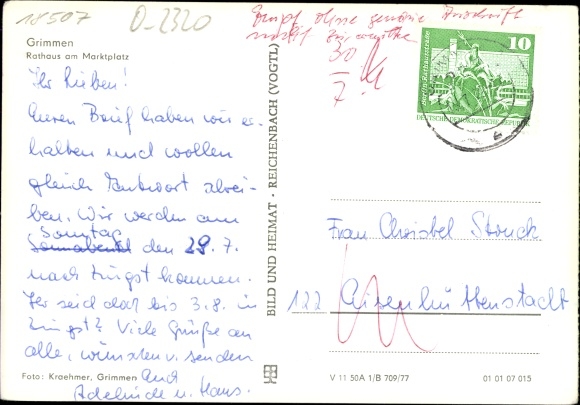 18507
O-2320
Empf ohne genaue Anschrift
nicht zu ermitteln
30
7.
Grimmen
Rathaus am Marktplatz
Ihr Lieben!
Euren Brief haben wir er-
halten und wollen
gleich Antwort schrei-
ben. Wir werden am
Sonntag
Sonnabend den 29. 7.
nach Zingst kommen.
Ihr seid doch bis 3.8. in
Zingst? Viele Grüße an
alle, wünschen u. senden
Foto: Kraehmer, Grimmen
Euch
Adelinde u. Hans.
BILD UND HEIMAT · REICHENBACH (VOGTL)
10
Berlin, Rathausstraße
DEUTSCHE DEMOKRATISCHE REPUBLIK
Frau Christel Storck
122 Eisenhüttenstadt
V 11 50A 1/B 709/77
01 01 07 015